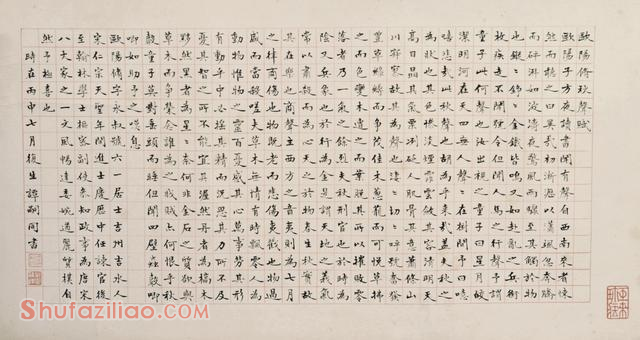 歐陽脩秋聲賦
歐陽子方夜讀書聞有聲自西南來者悚
然而聽之曰異哉初淅瀝以瀟颯忽奔騰
而砰湃如波濤夜驚風雨驟至其觸於物
也鏦鏦錚錚金鐵皆鳴又如赴敵之兵銜
枚疾走不聞號令但聞人馬之行聲予謂
童子此何聲也汝出視之童子曰星月皎
潔明河在天四無人聲聲在樹間予曰噫
嘻悲哉此秋聲也胡為乎來哉盖夫秋之
為狀也其色慘淡煙霏雲斂其容清明天
高日晶其氣慄冽砭人肌骨其意蕭條山
川寂寥故其為聲也淒淒切切呼號奮發
豐草綠縟而爭茂佳木葱蘢而可悅草拂
之而色變木遭之而葉脫其所以摧敗零
落者乃一氣之餘烈夫秋刑官也於時為
陰又兵象也於行為金是謂天地之義氣
常以肅殺而為心天之於物春生秋實故
其在樂也商聲主西方之音夷則為七月
之律商傷也物既老而悲傷夷戮也物過
盛而當殺嗟夫草木無情有時飄零人為
動物惟物之靈百憂感其心萬事勞其形
有動乎中必搖其精而況思其力之所不及
憂其智之所不能宜其渥然丹者為槁木
黟然黑者為星星奈何非金石之質欲與
草木而爭榮念誰為之戕賊亦何恨乎秋
聲童子莫對垂頭而睡但聞四壁蟲聲唧
唧如助予之嘆息
歐陽脩字永叔號六一居士吉州吉水人
宋仁宗天聖年間進士慶歷中任諫官後
至翰林學士樞密副使參知政事為唐宋
八大家之一文風暢達委婉遒麗質樸自
然予極喜也
時在丙申七月復生譚嗣同書
Shufaziliao.com